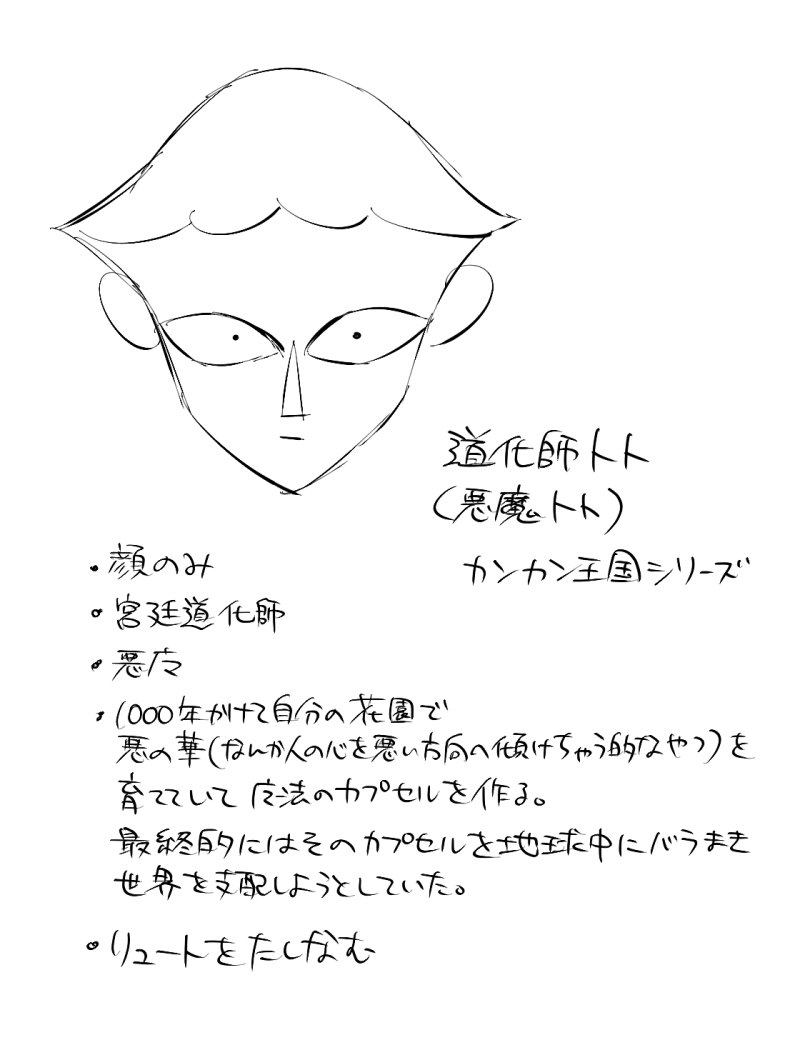 道化師トト
(悪魔トト)
カンカン王国シリーズ
・顔のみ
・宮廷道化師
・悪广マ
・1000年かけて自分の花園で
悪の華(なんか人の心を悪い方向へ傾けちゃう的なやつ)を
育てていて广マ法のカプセルを作る。
最終的にはそのカプセルを地球中にバラまき
世界を支配しようとしていた。
・リュートをたしなむ